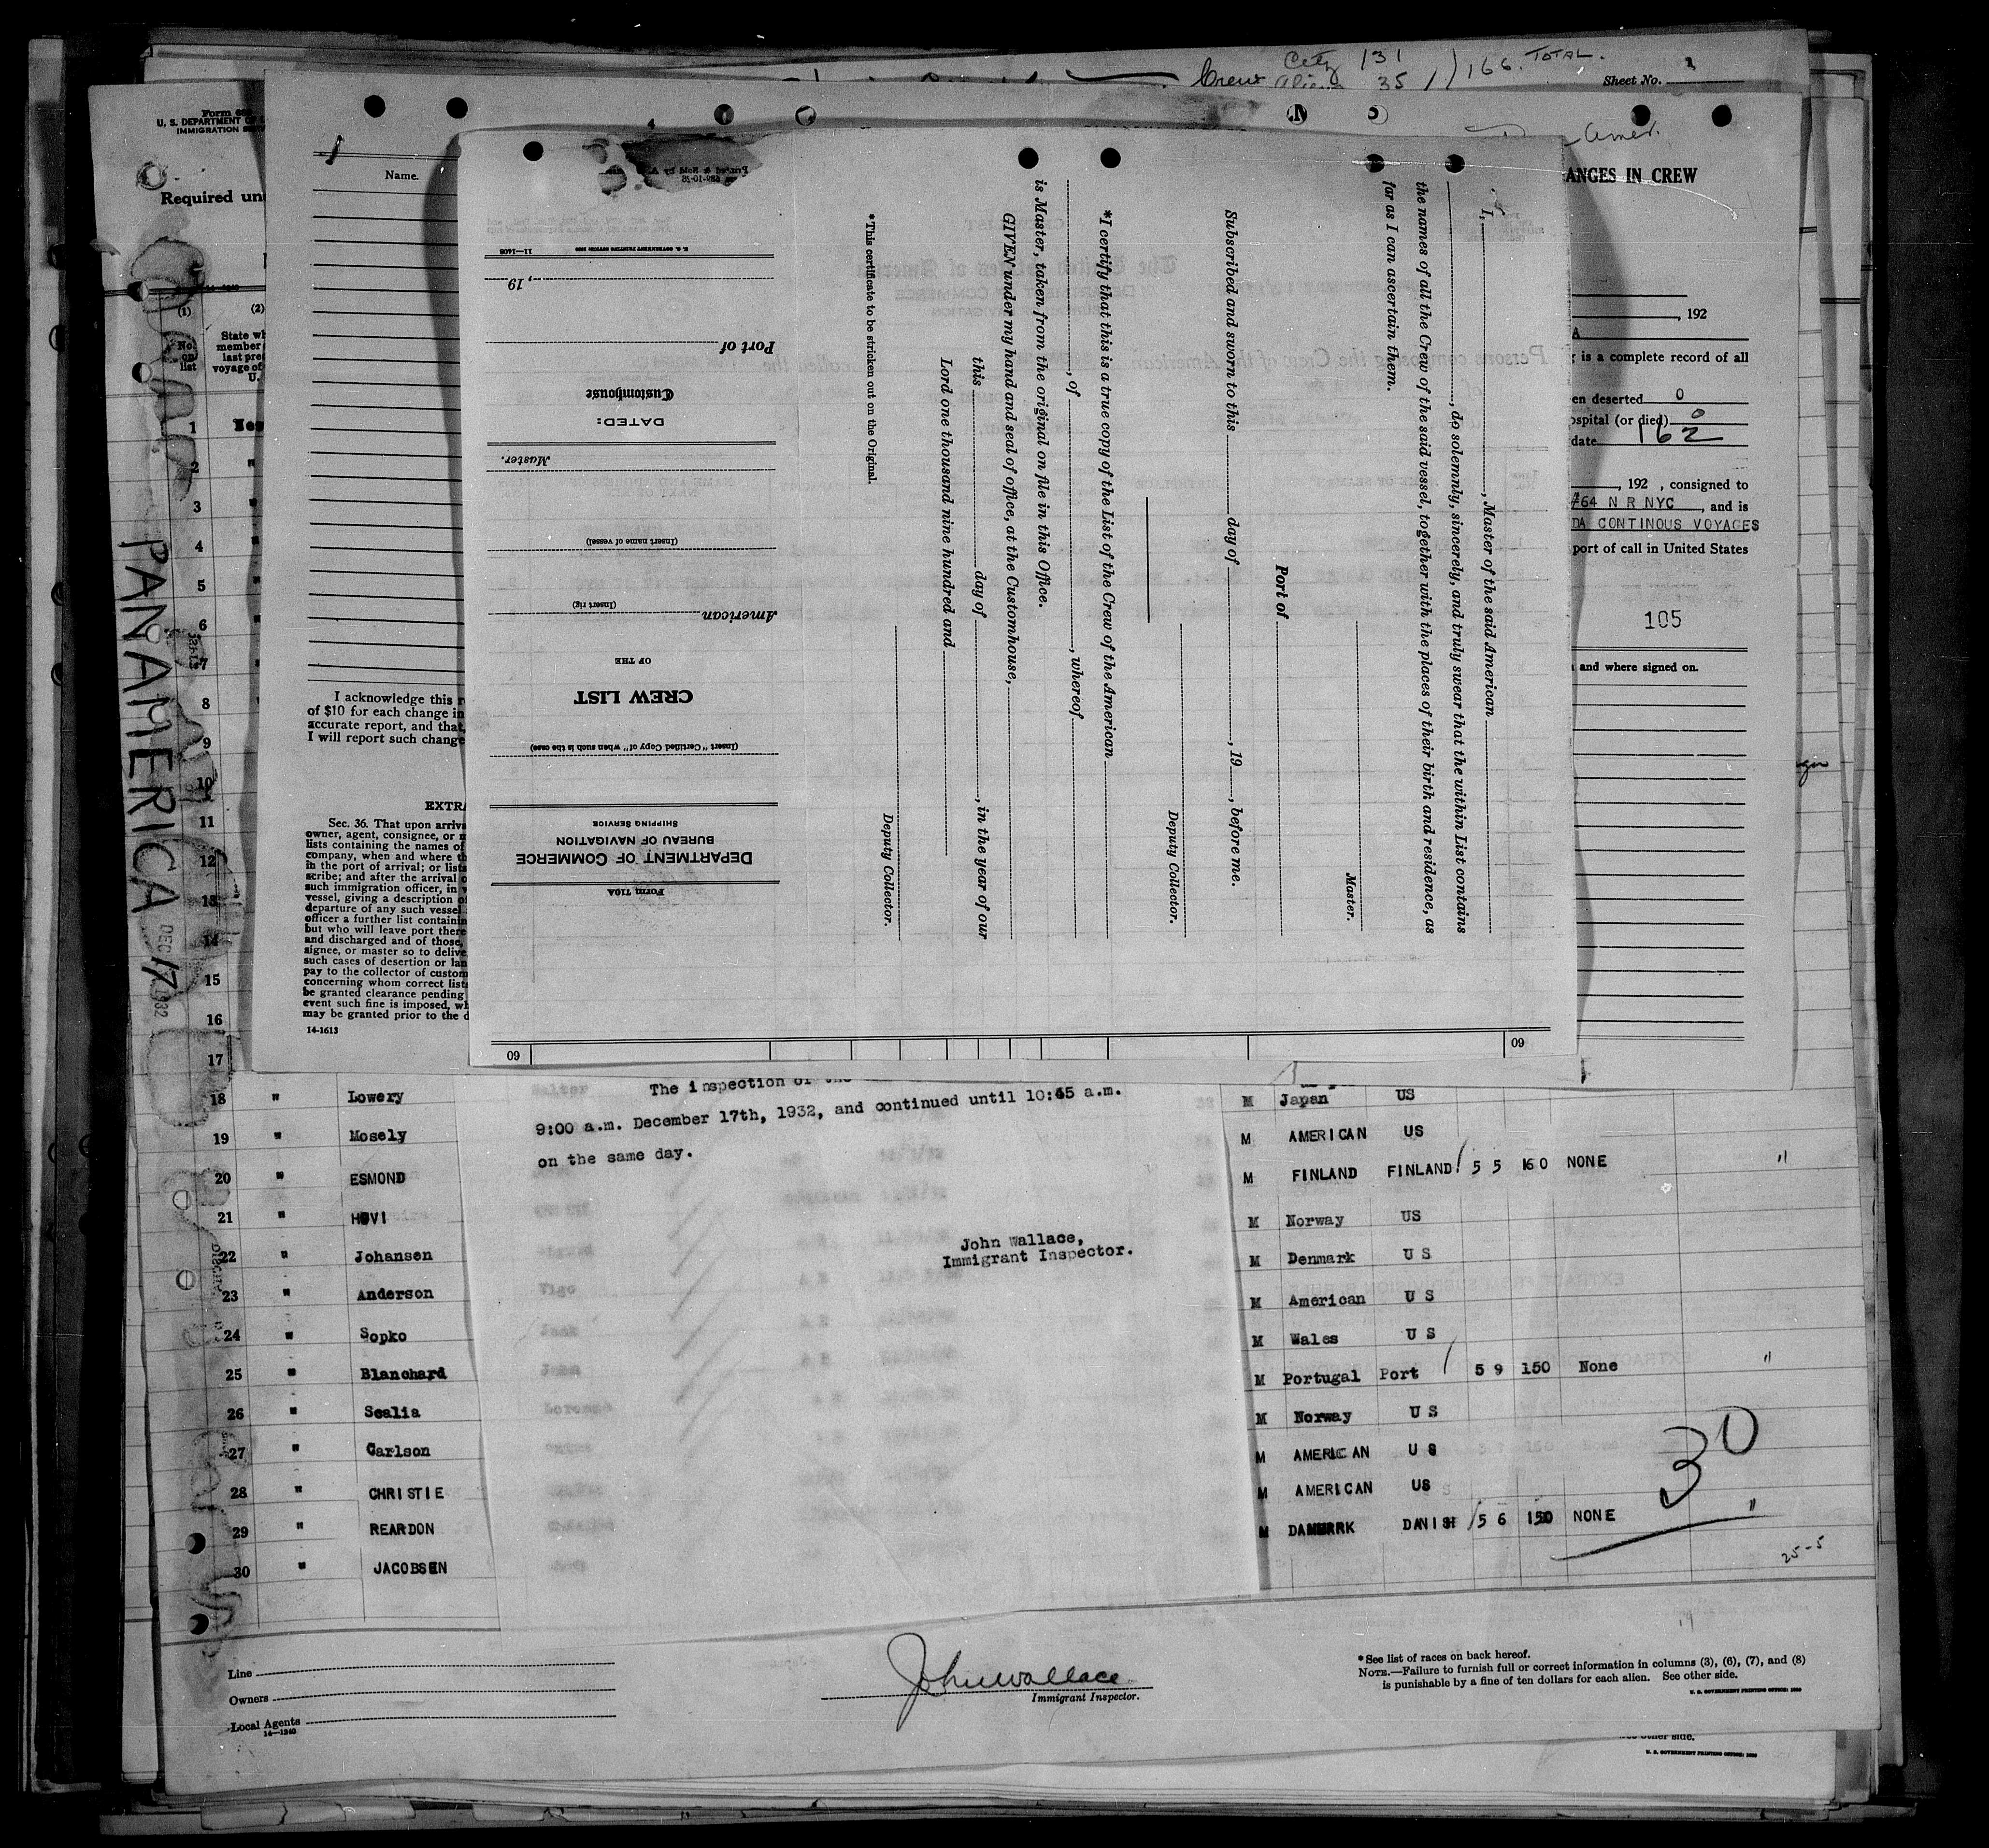 City 131
Crew Alien 35 / 166. TOTAL.
Sheet No. 1
Form 68
U. S. DEPARTMENT OF
IMMIGRATION
Required un
Name.
Amer.
ANGES IN CREW
, 192
A
g is a complete record of all
en deserted 0
ospital (or died) 0
date 162
, 192 , consigned to
#64 N R NYC , and is
DA CONTINOUS VOYAGES
port of call in United States
105
and where signed on.
(1) (2)
No. on list
State wh
member
last pre
voyage of
U.
1
2 "
3 "
4 "
5 "
6 "
7 "
8
9
10
11
12
13
14
15
16
17
PANAMERICA DEC 17 1932
I acknowledge this r
of $10 for each change in
accurate report, and that,
I will report such change
EXTRA
Sec. 36. That upon arriva
owner, agent, consignee, or m
lists containing the names of
company, when and where th
in the port of arrival; or lists
scribe; and after the arrival o
such immigration officer, in w
vessel, giving a description of
departure of any such vessel
officer a further list containin
but who will leave port there
and discharged and of those,
signee, or master so to delive
such cases of desertion or lan
pay to the collector of custom
concerning whom correct lists
be granted clearance pending
event such fine is imposed, wh
may be granted prior to the d
14-1613
Form 710A
DEPARTMENT OF COMMERCE
BUREAU OF NAVIGATION
SHIPPING SERVICE
(Insert "Certified Copy of" when such is the case)
CREW LIST
OF THE
American
(Insert rig)
(Insert name of vessel)
Master.
DATED:
Customhouse
Port of
, 19
U. S. GOVERNMENT PRINTING OFFICE 11—1408
I, , Master of the said American
, do solemnly, sincerely, and truly swear that the within List contains
the names of all the Crew of the said vessel, together with the places of their birth and residence, as
far as I can ascertain them.
Master.
Port of
Subscribed and sworn to this day of , 19 , before me.
Deputy Collector.
*I certify that this is a true copy of the List of the Crew of the American
, of , whereof
is Master, taken from the original on file in this Office.
GIVEN under my hand and seal of office, at the Customhouse,
this day of , in the year of our
Lord one thousand nine hundred and
Deputy Collector.
*This certificate to be stricken out on the Original.
60 60
The inspection of the
9:00 a.m. December 17th, 1932, and continued until 10:45 a.m.
on the same day.
John Wallace,
Immigrant Inspector.
18 " Lowery
19 " Mosely
20 " ESMOND
21 " HOVI
22 " Johansen
23 " Anderson
24 " Sopko
25 " Blanchard
26 " Scalia
27 " Carlson
28 " CHRISTIE
29 " REARDON
30 " JACOBSEN
M Japan US
M AMERICAN US
M FINLAND FINLAND / 5 5 160 NONE "
M Norway US
M Denmark U S
M American U S
M Wales U S
M Portugal Port / 5 9 150 None "
M Norway U S
M AMERICAN U S
M AMERICAN US
M DANMARK DANISH / 5 6 150 NONE "
30
25-5
Line
Owners
Local Agents
14—1240
John Wallace
Immigrant Inspector.
*See list of races on back hereof.
NOTE.—Failure to furnish full or correct information in columns (3), (6), (7), and (8)
is punishable by a fine of ten dollars for each alien. See other side.
U. S. GOVERNMENT PRINTING OFFICE: 1930
other side.
U. S. GOVERNMENT PRINTING OFFICE: 1930